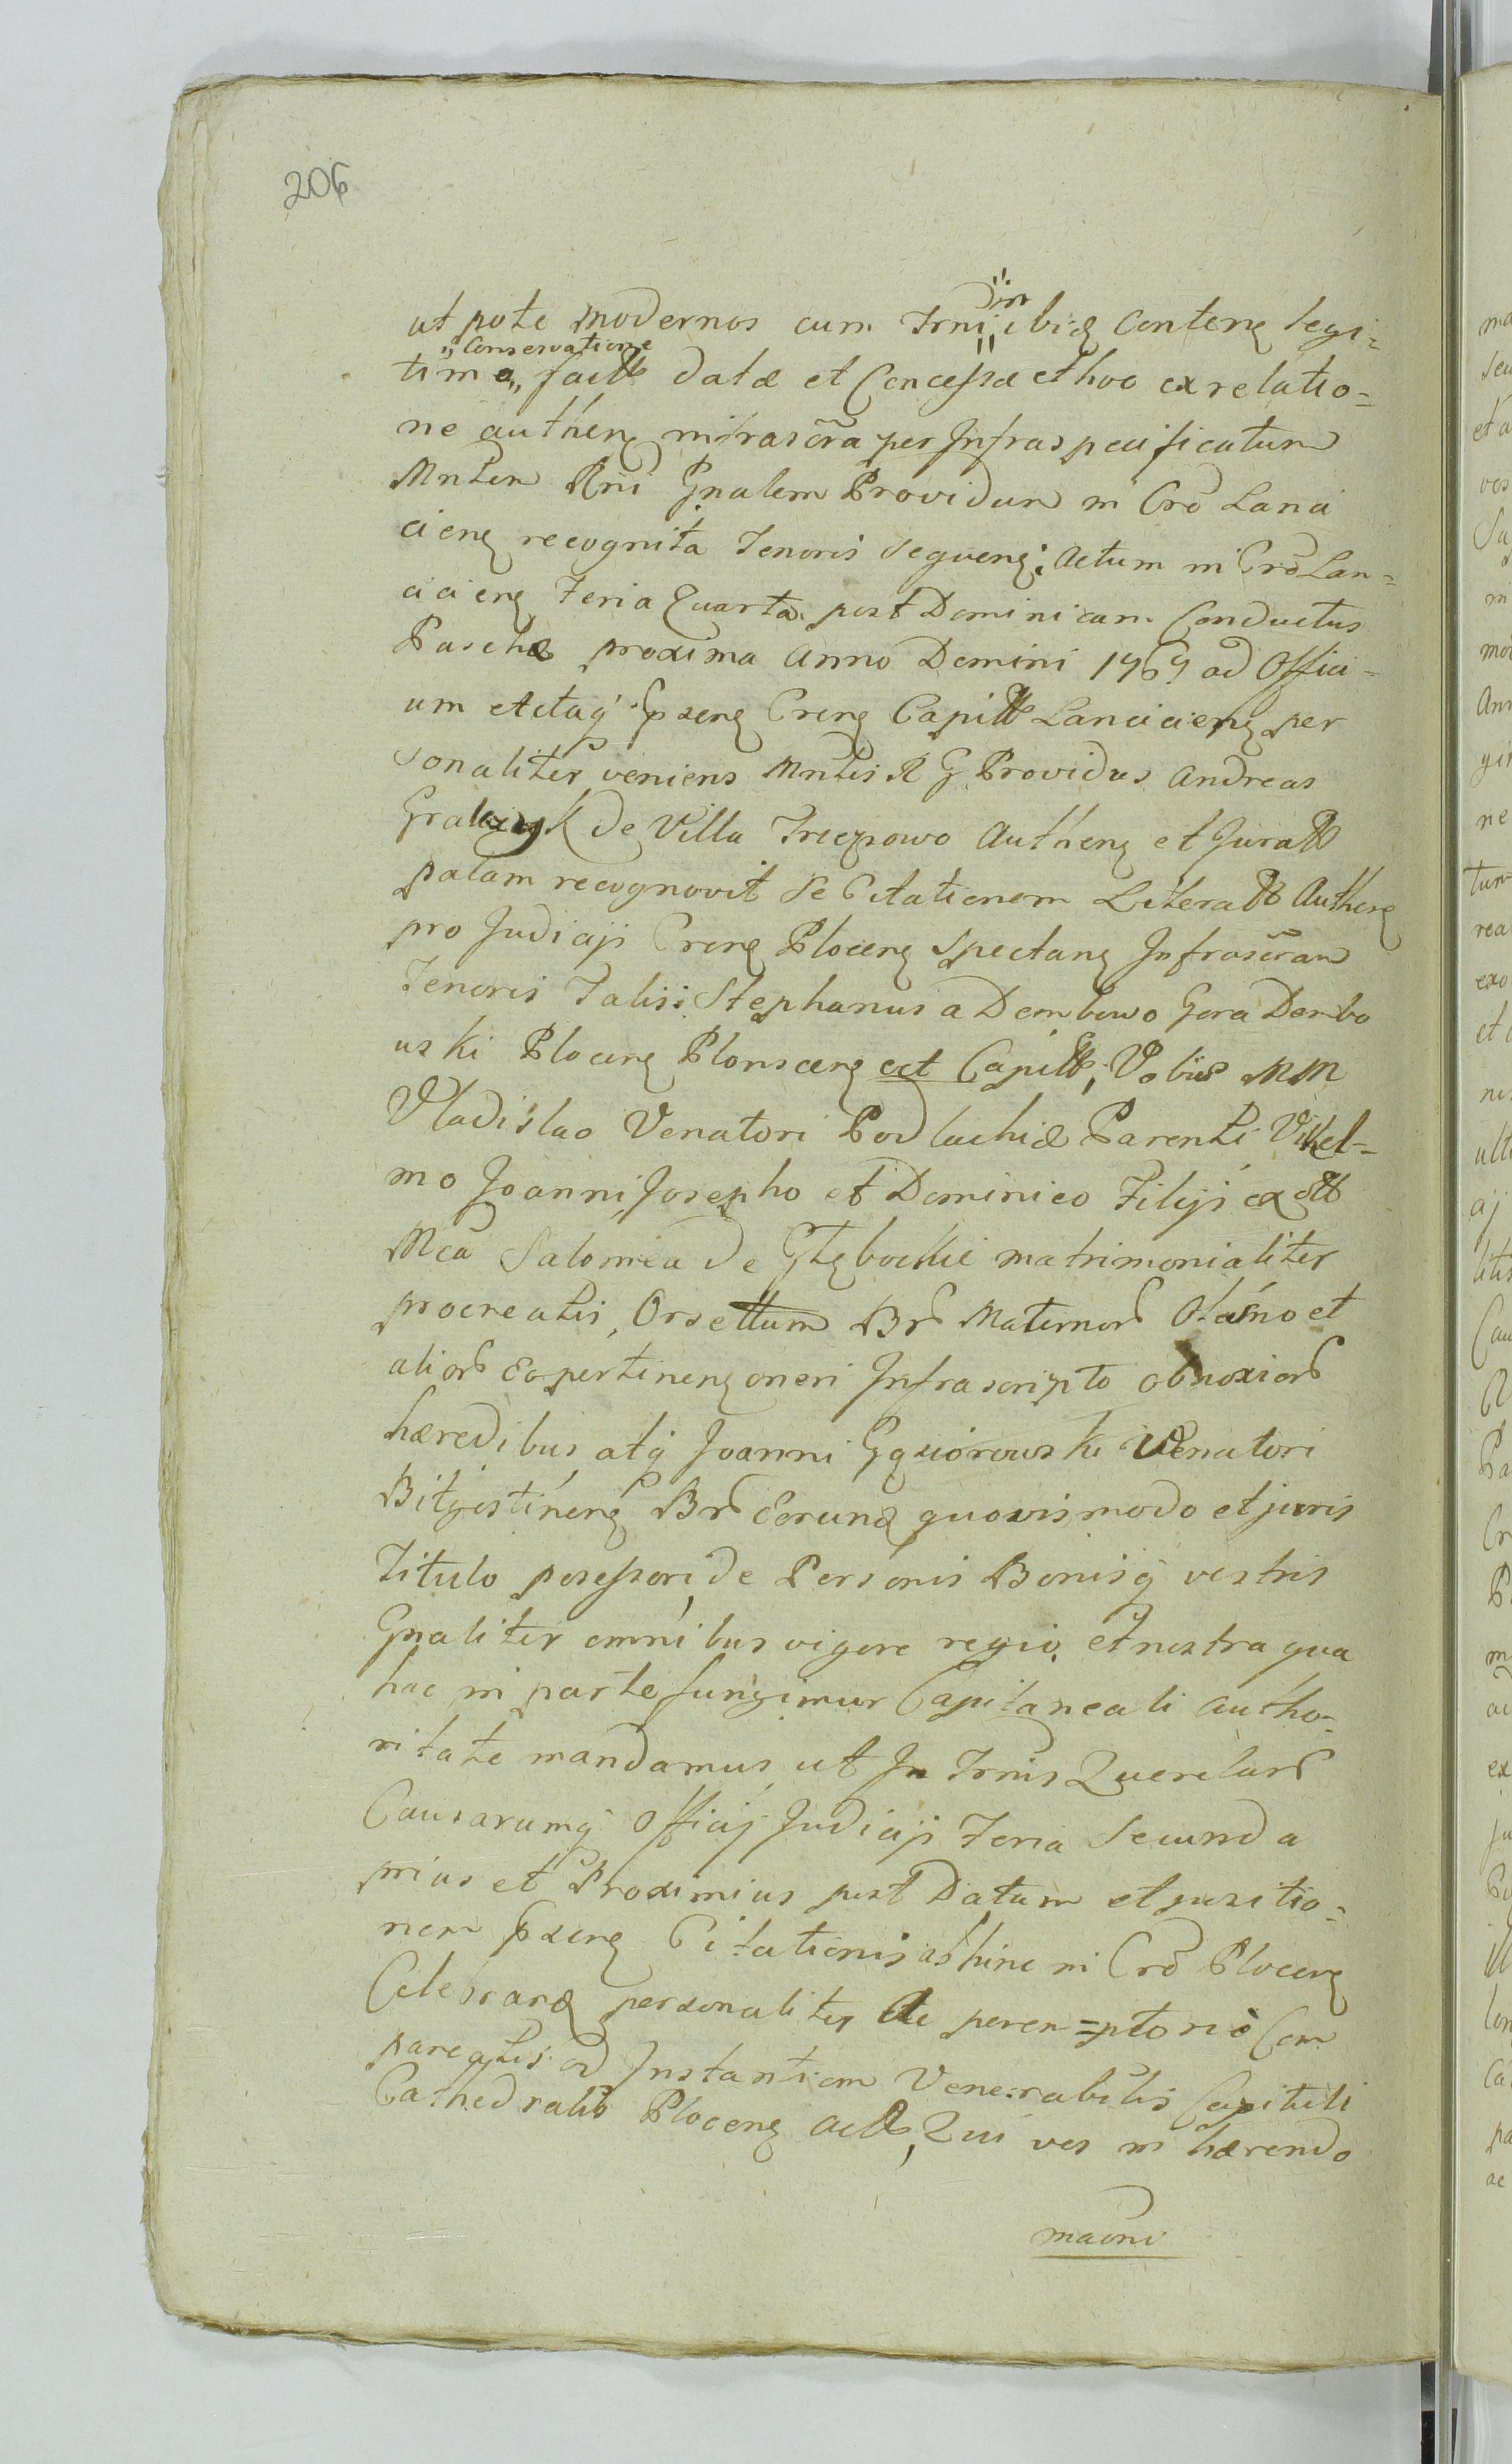 206
ut pote modernos cum Trni "in" ibiq Conteng legi-
tima "Conservatione" factt datæ et Concessæ et hoc ex relatio-
ne autheng infrascra per Infraspecificatum
Mnlem Rni Gnalem Providum in Cro Lanci
cieng recognita Tenoris Segueng: Actum in Cro Lan-
cicieng Feria Quarta post Dominicam Conductus
Paschæ proxima Anno Domini 1769 ad Offici-
um Actaq Pxseng Creng Capitt Lancicieng per
sonaliter veniens Mnlis R G Providus Andreas
de Villa Trzepowo Autheng et Juratt
palam recognovit Se Citationem Literatt Autheng
pro Judiciji Creng Ploceng Spectang Infrascram
Tenoris Talis: Stephanus a Dembowo Gora Dembo
wski Ploceng Plonsceng ect Capitt; Vobis MM
Vladislao Venatori Podlachiæ Parenti Vihel-
mo Joanni Josepho et Dominico Filijs ex ott
Mca Salomea de Głębockie matrimonialiter
procreatis, Orsettum Br Maternor et
alior Eo pertineng oneri Infrascripto obnoxior
hæredibus atq Joanni Venatori
Br Eorund quovis modo et juris
Titulo possessori, de Personis Bonisq vestris
Gnaliter omnibus vigore regio, et nostra qua
hac in parte fungimur Capitaneali autho-
ritate mandamus ut In Trnis Querelar
Causarumq Officij Judiciji Feria Secunda
prius et Proximius post Datum et positio-
nem Pxseng Citationis abhinc in Cro Ploceng
Celebrand personaliter Ae peren=ptorie Com
pareatis ad Instantiam Venerabilis Capituli
Cathedralis Ploceng Actt, Qui vos in hærendo